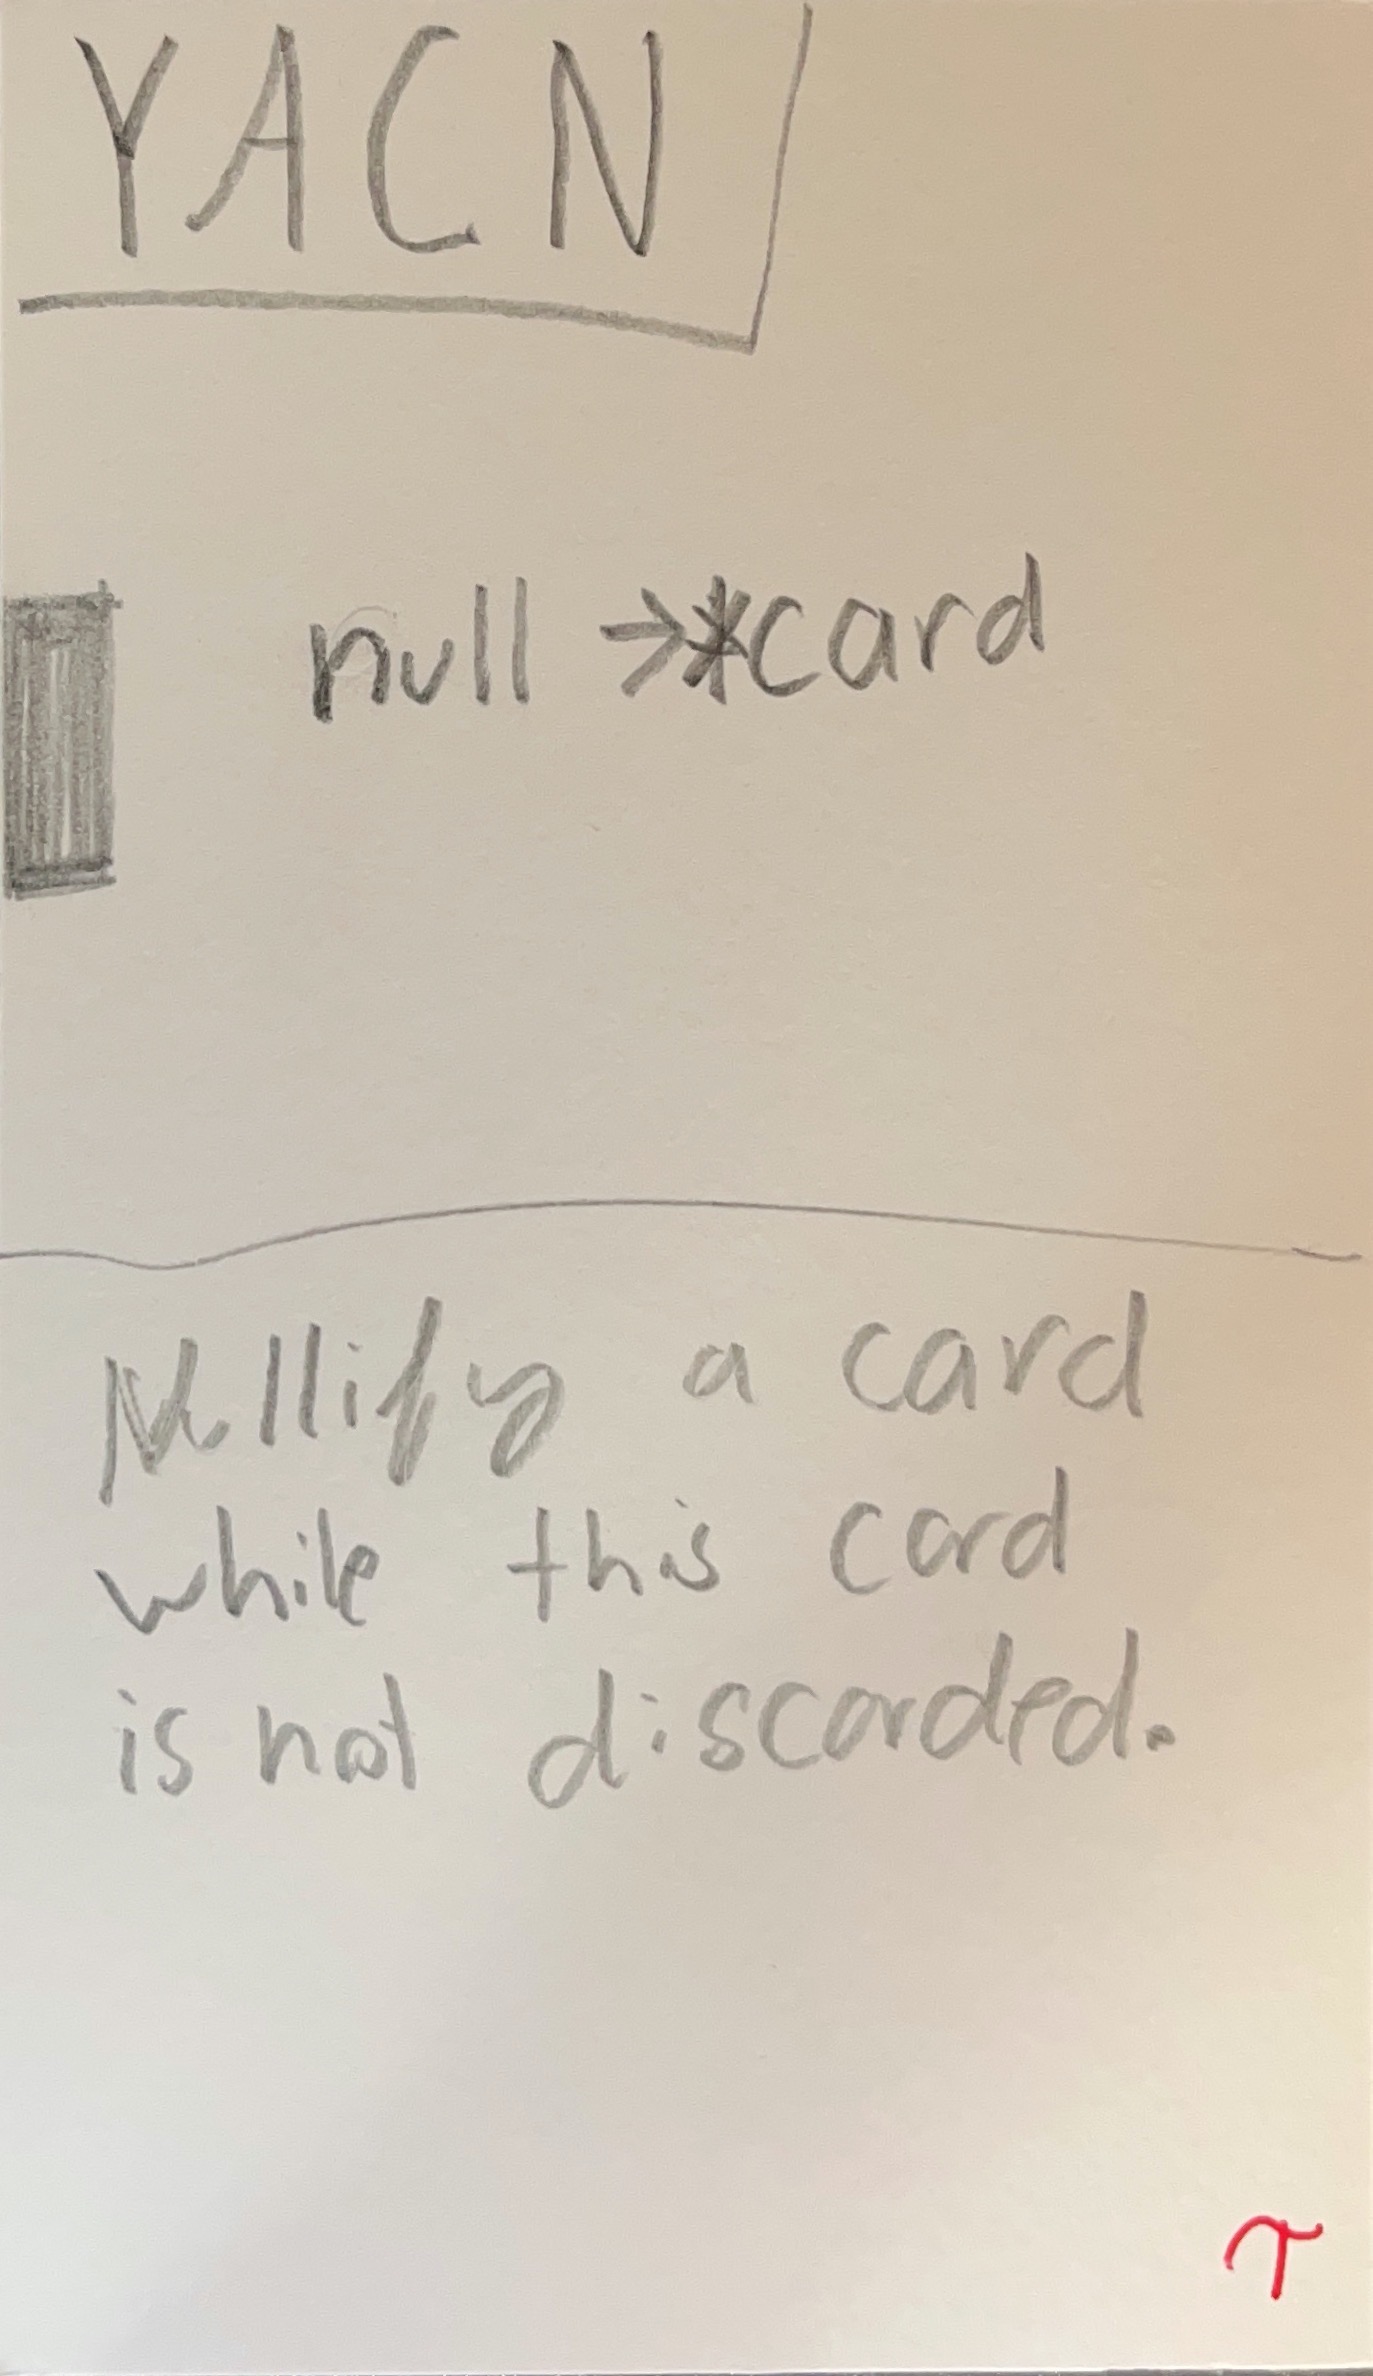 YACN
null →*card
Nullify a card
while this card
is not discarded.
τ